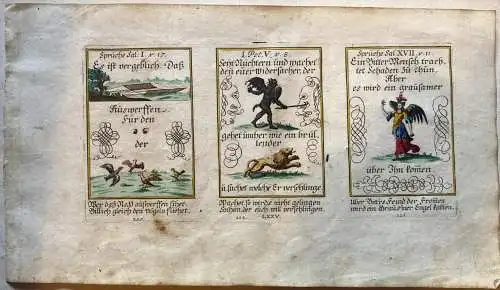 Sprüche Sal. I. v. 17.
Es ist vergeblich. Daß
Außwerffen
Für den
der
Wer daß Netz außwerffen sihet.
Billich gleich den Vögeln fliehet.
I. Pet. V. v. 8.
Seyt Nüchtern und wachet
den euer Widersacher der
gehet umher wie ein brül,
lender
u suchet welche Er verschlinge
Wachet so wirds nicht gelingen
Feinden, der euch will verschlingen.
LXXV.
Sprüche Sal. XVII. v. 11.
Ein Bitter Mensch trach,
tet Schaden zu thun.
Aber
es wird ein grausamer
über Ihn komen
Feind der Frommen
wird ein Grausamer Engel komen.